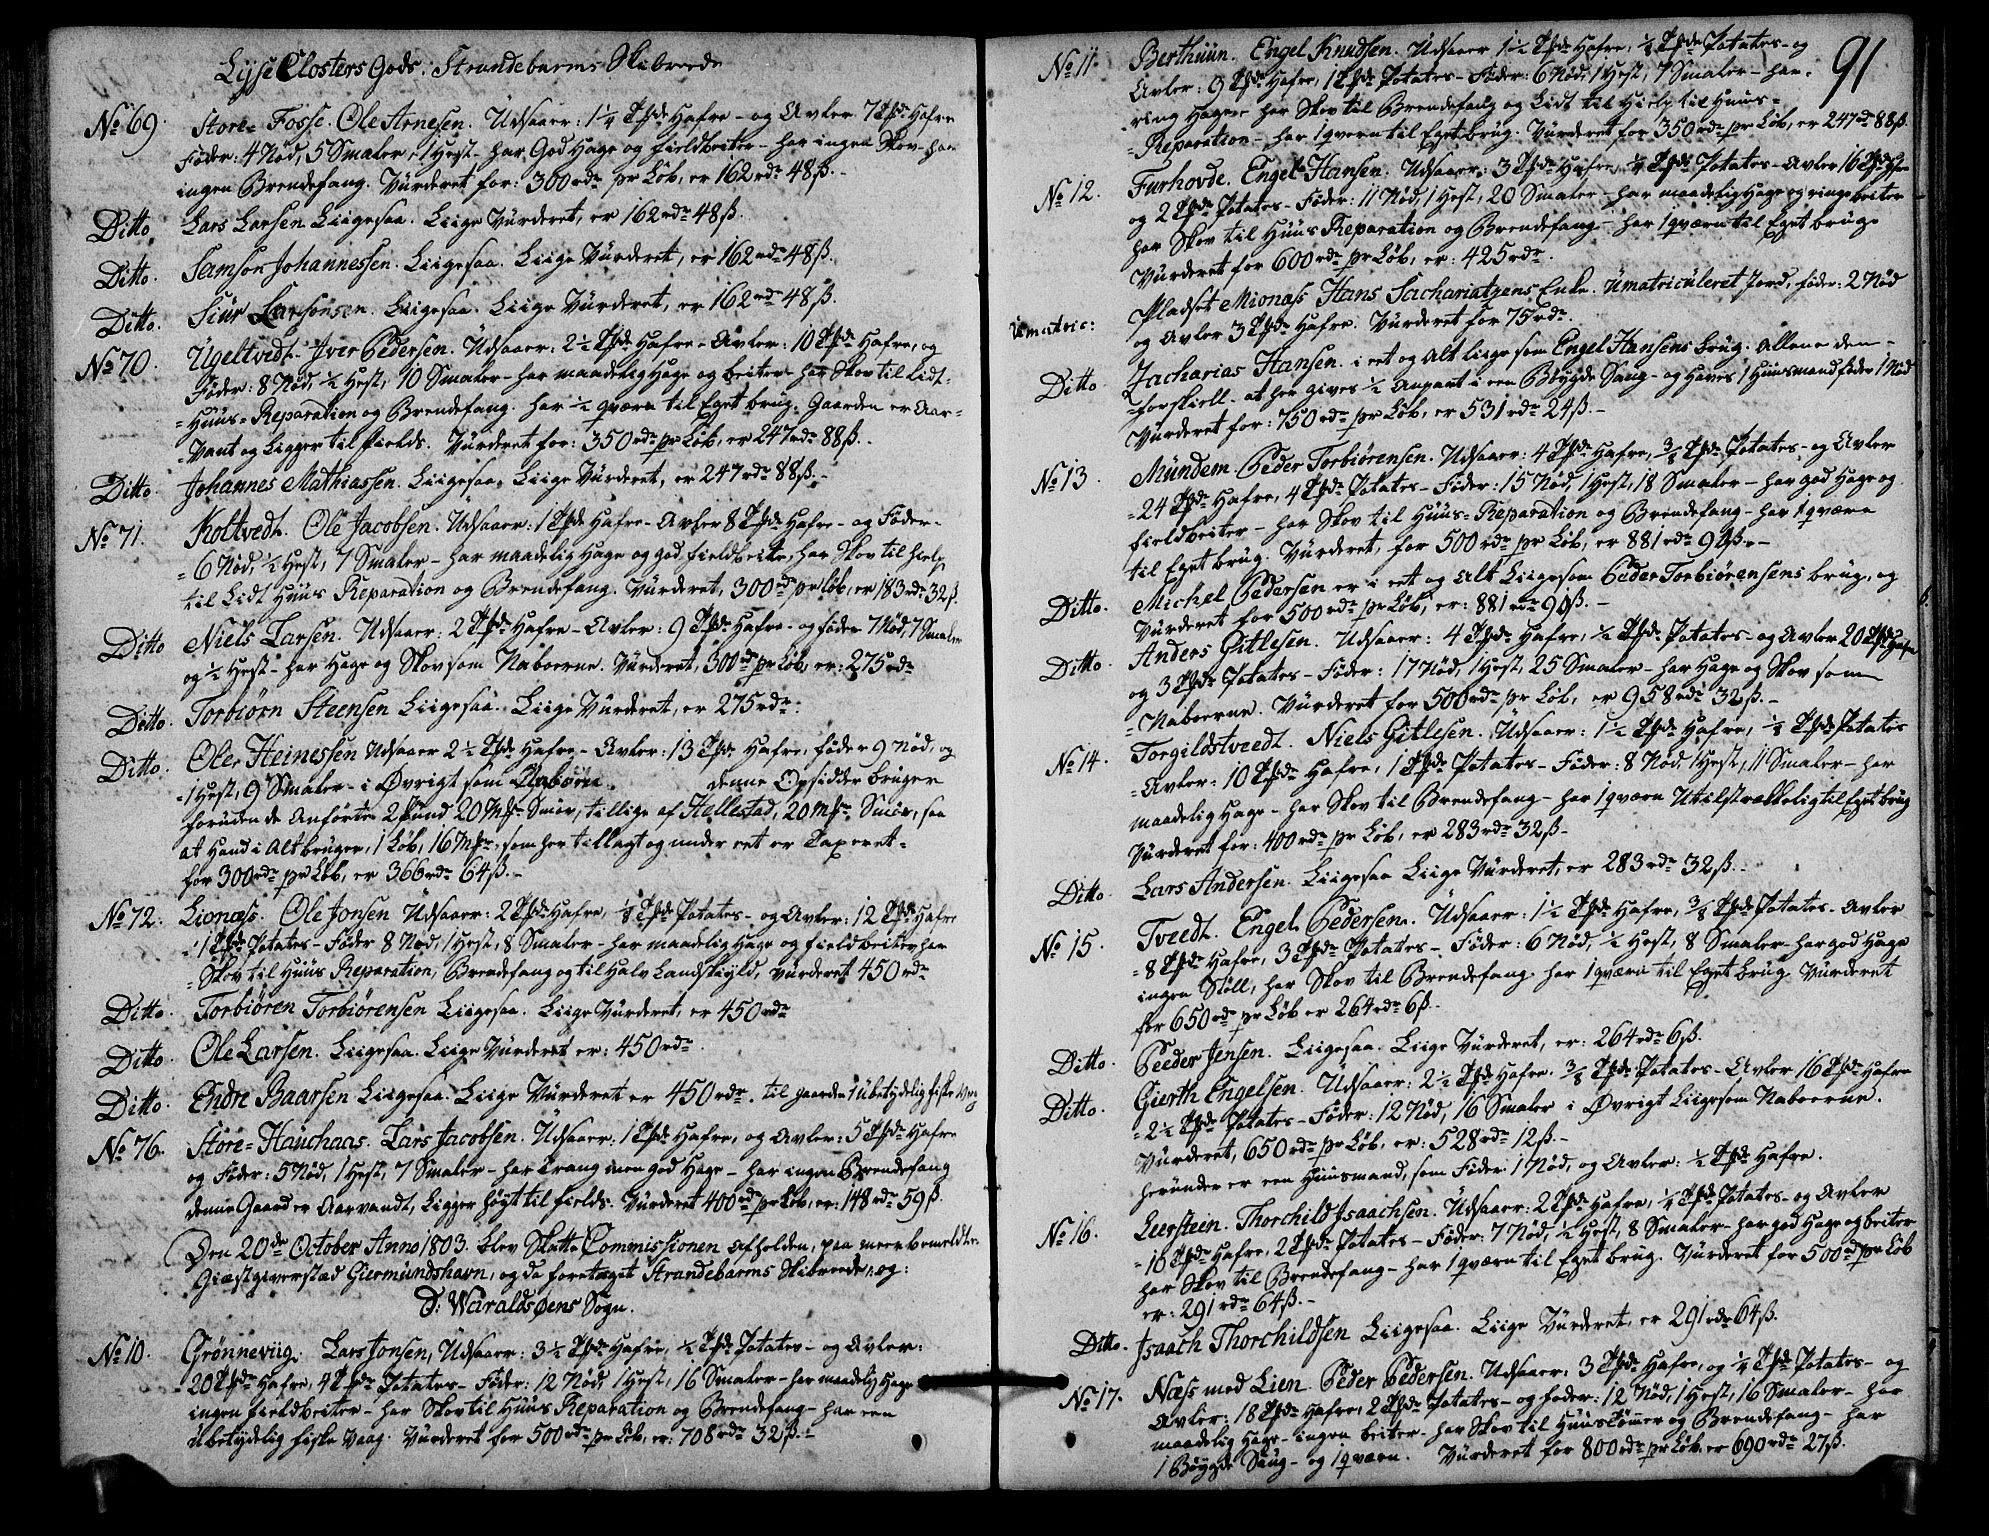 Lyse Closters Gods: Strandebarms Skibrede
No 69. Store-Fosse. Ole Arnesen. Udsaaer: 1 1/4 Tønde Hafre - og Avler 7 Tønde Hafre
Føder: 4 Nød, 5 Smaler, 1 Hest - har God Hage og fieldbeiter - har ingen Skov - har
ingen Brendefang. Vurderet for: 300 rdr pr Løb, er 162 rdr 48 ß.-
Ditto. Lars Larsen Liigesaa. Liige Vurderet, er 162 rdr 48 ß.
Ditto. Samson Johannessen. Liigesaa. Liige Vurderet, er 162 rdr 48 ß.
Ditto. Siur Larsonsen. Liigesaa. Liige Vurderet, er 162 rdr 48 ß.
No 70. Ugeltvedt. Iver Pedersen. Udsaaer: 2 1/2 Tønde Hafre - Avler: 10 Tønde Hafre, og
Føder: 8 Nød, 1/2 Hest, 10 Smaler - har maadelig Hage og beiter - har Skov til Lidt
Huus-Reparation og Brendefang. har 1/2 qværn til Eget brug. Gaarden er Aar-
Vant og Ligger til fields. Vurderet for: 350 rdr pr Løb, er 247 rdr 88 ß.
Ditto. Johannes Mathiassen. Liigesaa, Liige Vurderet, er 247 rdr 88 ß.-
No 71. Koltvedt. Ole Jacobsen. Udsaaer: 1 Tønde Hafre - Avler 8 Tønde Hafre - og Føder-
6 Nød, 1/2 Hest, 7 Smaler - har maadelig Hage og god fieldbeite, har Skov til hielp
til Lidt Huus Reparation og Brendefang. Vurderet, 300 rdr pr Løb, er 183 rdr 32 ß.
Ditto Niels Larsen. Udsaaer: 2 Tønde Hafre - Avler: 9 Tønde Hafre - og føder 7 Nød, 7 Smaler
og 1/2 Hest - har Hage og Skov som Naboerne. Vurderet, 300 rdr pr Løb, er: 275 rdr
Ditto. Torbiørn Steensen Liigesaa. Liige Vurderet, er 275 rdr:
Ditto. Ole Heinessen Udsaaer 2 1/2 Tønde Hafre - Avler: 13 Tønde Hafre, føder 9 Nød, og
1 Hest, 9 Smaler - i Øvrigt som Naboerne. denne Opsidder bruger
foruden de Anførte 2 Pund 20 Mrk Smør, tillige af Hellestad, 20 Mrk Smør, saa
at hand i Alt bruger, 1 Løb, 16 Mrk, som her tillagt og under eet er Taxeret-
for 300 rdr pr Løb, er 366 rdr 64 ß.-
No 72. Lionæss. Ole Jonsen Udsaaer: 2 Tønde Hafre, 1/8 Tønde Potates - og Avler: 12 Tønde Hafre
1 Tønde Potates - Føder 8 Nød, 1 Hest, 8 Smaler - har maadelig Hage og fieldbeiter har
Skov til Huus Reparation, Brendefang og til Halv Landskyld, vurderet 450 rdr
Ditto. Torbiøren Torbiørensen Liigesaa. Liige Vurderet, er 450 rdr
Ditto. Ole Larsen. Liigesaa. Liige Vurderet er: 450 rdr.
Ditto. Endre Baarsen Liigesaa. Liige Vurderet er 450 rdr. til gaarden 1 ubetydelig fiske Vaag
No 76. Store-Hauchaas. Lars Jacobsen. Udsaaer: 1 Tønde Hafre, og Avler: 5 Tønde Hafre
og Føder: 5 Nød, 1 Hest, 7 Smaler - har Trang men god Hage - har ingen Brendefang
denne Gaard er Aarvandt, Ligger høyt til fields. Vurderet 400 rdr pr Løb, er: 148 rdr 59 ß.
Den 20de October Anno 1803. blev Skatte Commissionen afholden, paa meerbemeldte
Giæstgiverstæd Giermundshavn, og da foretaget Strandebarms Skibrede, og:
D: Waraldsøens Sogn.
No 10. Grønneviig. Lars Jonsen, Udsaaer: 3 1/2 Tønde Hafre, 1/2 Tønde Potates - og Avler:
20 Tønde Hafre, 4 Tønde Potates - Føder: 12 Nød, 1 Hest, 16 Smaler - har maadelig Hage
ingen fieldbeiter - har Skov til Huus Reparation og Brendefang - har een
ubetydelig fiske Vaag. Vurderet for 500 rdr pr Løb, er: 708 rdr 32 ß.-
91
No 11. Berthuun. Engel Knudsen. Udsaaer 1 1/2 Tønde Hafre, 1/8 Tønde Potates - og
Avler: 9 Tønde Hafre, 1 Tønde Potates - Føder: 6 Nød, 1 Hest, 7 Smaler - har
ring Hage - har Skov til Brendefang og Lidt til Hielp til Huus-
Reparation - har 1 qvern til Eget brug. Vurderet for 350 rdr pr Løb, er 247 rdr 88 ß.
No 12. Furhovde. Engel Hansen. Udsaaer: 3 Tønde Hafre, 1/4 Tønde Potates - Avler 16 Tønde Hafre
og 2 Tønde Potates - Føder: 11 Nød, 1 Hest, 20 Smaler - har maadelig Hage og ringe beiter
har Skov til Huus Reparation og Brendefang - har 1 qværn til Eget bruge
Vurderet for 600 rdr pr Løb, er: 425 rdr.
Umatric: Pladset Mionæss Hans Sachariatzens Enke. Umatriculeret Jord, føder: 2 Nød
og Avler 3 Tønde Hafre. Vurderet for 75 rdr.
Ditto Zacharias Hansen. i eet og Alt liige som Engel Hansens brug. Allene den-
forskiell - at her gives 1/2 Anpart i een Bøygde Saug - og haves 1 Huusmand føder 1 Nød
Vurderet for: 750 rdr pr Løb, er 531 rdr 24 ß.-
No 13. Mundem. Peder Torbiørensen. Udsaaer: 4 Tønde Hafre, 3/8 Tønde Potates - og Avler
24 Tønde Hafre, 4 Tønde Potates - Føder: 15 Nød, 1 Hest, 18 Smaler - har god Hage og
fieldbeiter - har Skov til Huus-Reparation og Brendefang - har 1 qværn
til Eget brug. Vurderet, for 500 rdr pr Løb, er 881 rdr 90 ß.-
Ditto. Michel Pedersen er i eet og Alt Liigesom Peder Torbiørensens brug, og
Vurderet for 500 rdr pr Løb, er: 881 rdr 90 ß.-
Ditto. Anders Gitlesen. Udsaaer: 4 Tønde Hafre, 1/2 Tønde Potates - og Avler 20 Tønde Hafre
og 3 Tønde Potates - Føder: 17 Nød, 1 Hest, 25 Smaler - har Hage og Skov som
Naboerne. Vurderet for 500 rdr pr Løb, er 958 rdr 32 ß.-
No 14. Torgildstveedt. Niels Gitlesen. Udsaaer: 1 1/2 Tønde Hafre, 1/8 Tønde Potates
Avler: 10 Tønde Hafre, 1 Tønde Potates - Føder: 8 Nød 1 Hest, 11 Smaler - har
maadelig Hage - har Skov til Brendefang - har 1 qværn Utilstrækkelig til Eget brug
Vurderet for: 400 rdr pr Løb, er 283 rdr 32 ß-
Ditto. Lars Andersen. Liigesaa Liige Vurderet, er 283 rdr 32 ß.-
No 15. Tveedt. Engel Pedersen. Udsaaer: 1 1/2 Tønde Hafre, 3/8 Tønde Potates - Avler
8 Tønde Hafre, 3 Tønde Potates - Føder: 6 Nød, 1/2 Hest, 8 Smaler - har god Hage
ingen Støll, har Skov til Brendefang. har 1 qværn til Eget brug. Vurderet
for 650 rdr pr Løb er 264 rdr 6 ß.
Ditto. Peder Jensen. Liigesaa. Liige Vurderet, er: 264 rdr 6 ß.
Ditto. Gierth Engelsen. Udsaaer: 2 1/2 Tønde Hafre. 3/8 Tønde Potates - Avler 16 Tønde Hafre
2 1/2 Tønde Potates - Føder: 12 Nød, 16 Smaler i Øvrigt Liigesom Naboerne.
Vurderet, 650 rdr pr Løb, er: 528 rdr 12 ß.-
herunder er een Huusmand, som Føder 1 Nød, og Avler: 1/2 Tønde Hafre.
No 16. Leerstein. Thorchild Isaachsen. Udsaaer: 2 Tønde Hafre, 1/4 Tønde Potates - og Avler
10 Tønde Hafre, 2 Tønde Potates - Føder: 7 Nød, 1/2 Hest, 8 Smaler - har god Hage og beiter
har Skov til Brendefang - har 1 qværn til Eget brug. Vurderet for 500 rdr pr Løb
er: 291 rdr 64 ß.-
Ditto. Isaach Thorchildsen Liigesaa. Liige Vurderet, er 291 rdr 64 ß.
No 17. Næss med Lien. Peder Pedersen. Udsaaer: 3 Tønde Hafre, og 1/4 Tønde Potates - og
Avler: 18 Tønde Hafre, 2 Tønde Potates - og føder: 12 Nød, 1 Hest, 16 Smaler - har
maadelig Hage - ingen beiter - har Skov til Huustømer og Brendefang - har
1 Bøygde Saug - og 1 qværn. Vurderet for 800 rdr pr Løb er 690 rdr 27 ß.